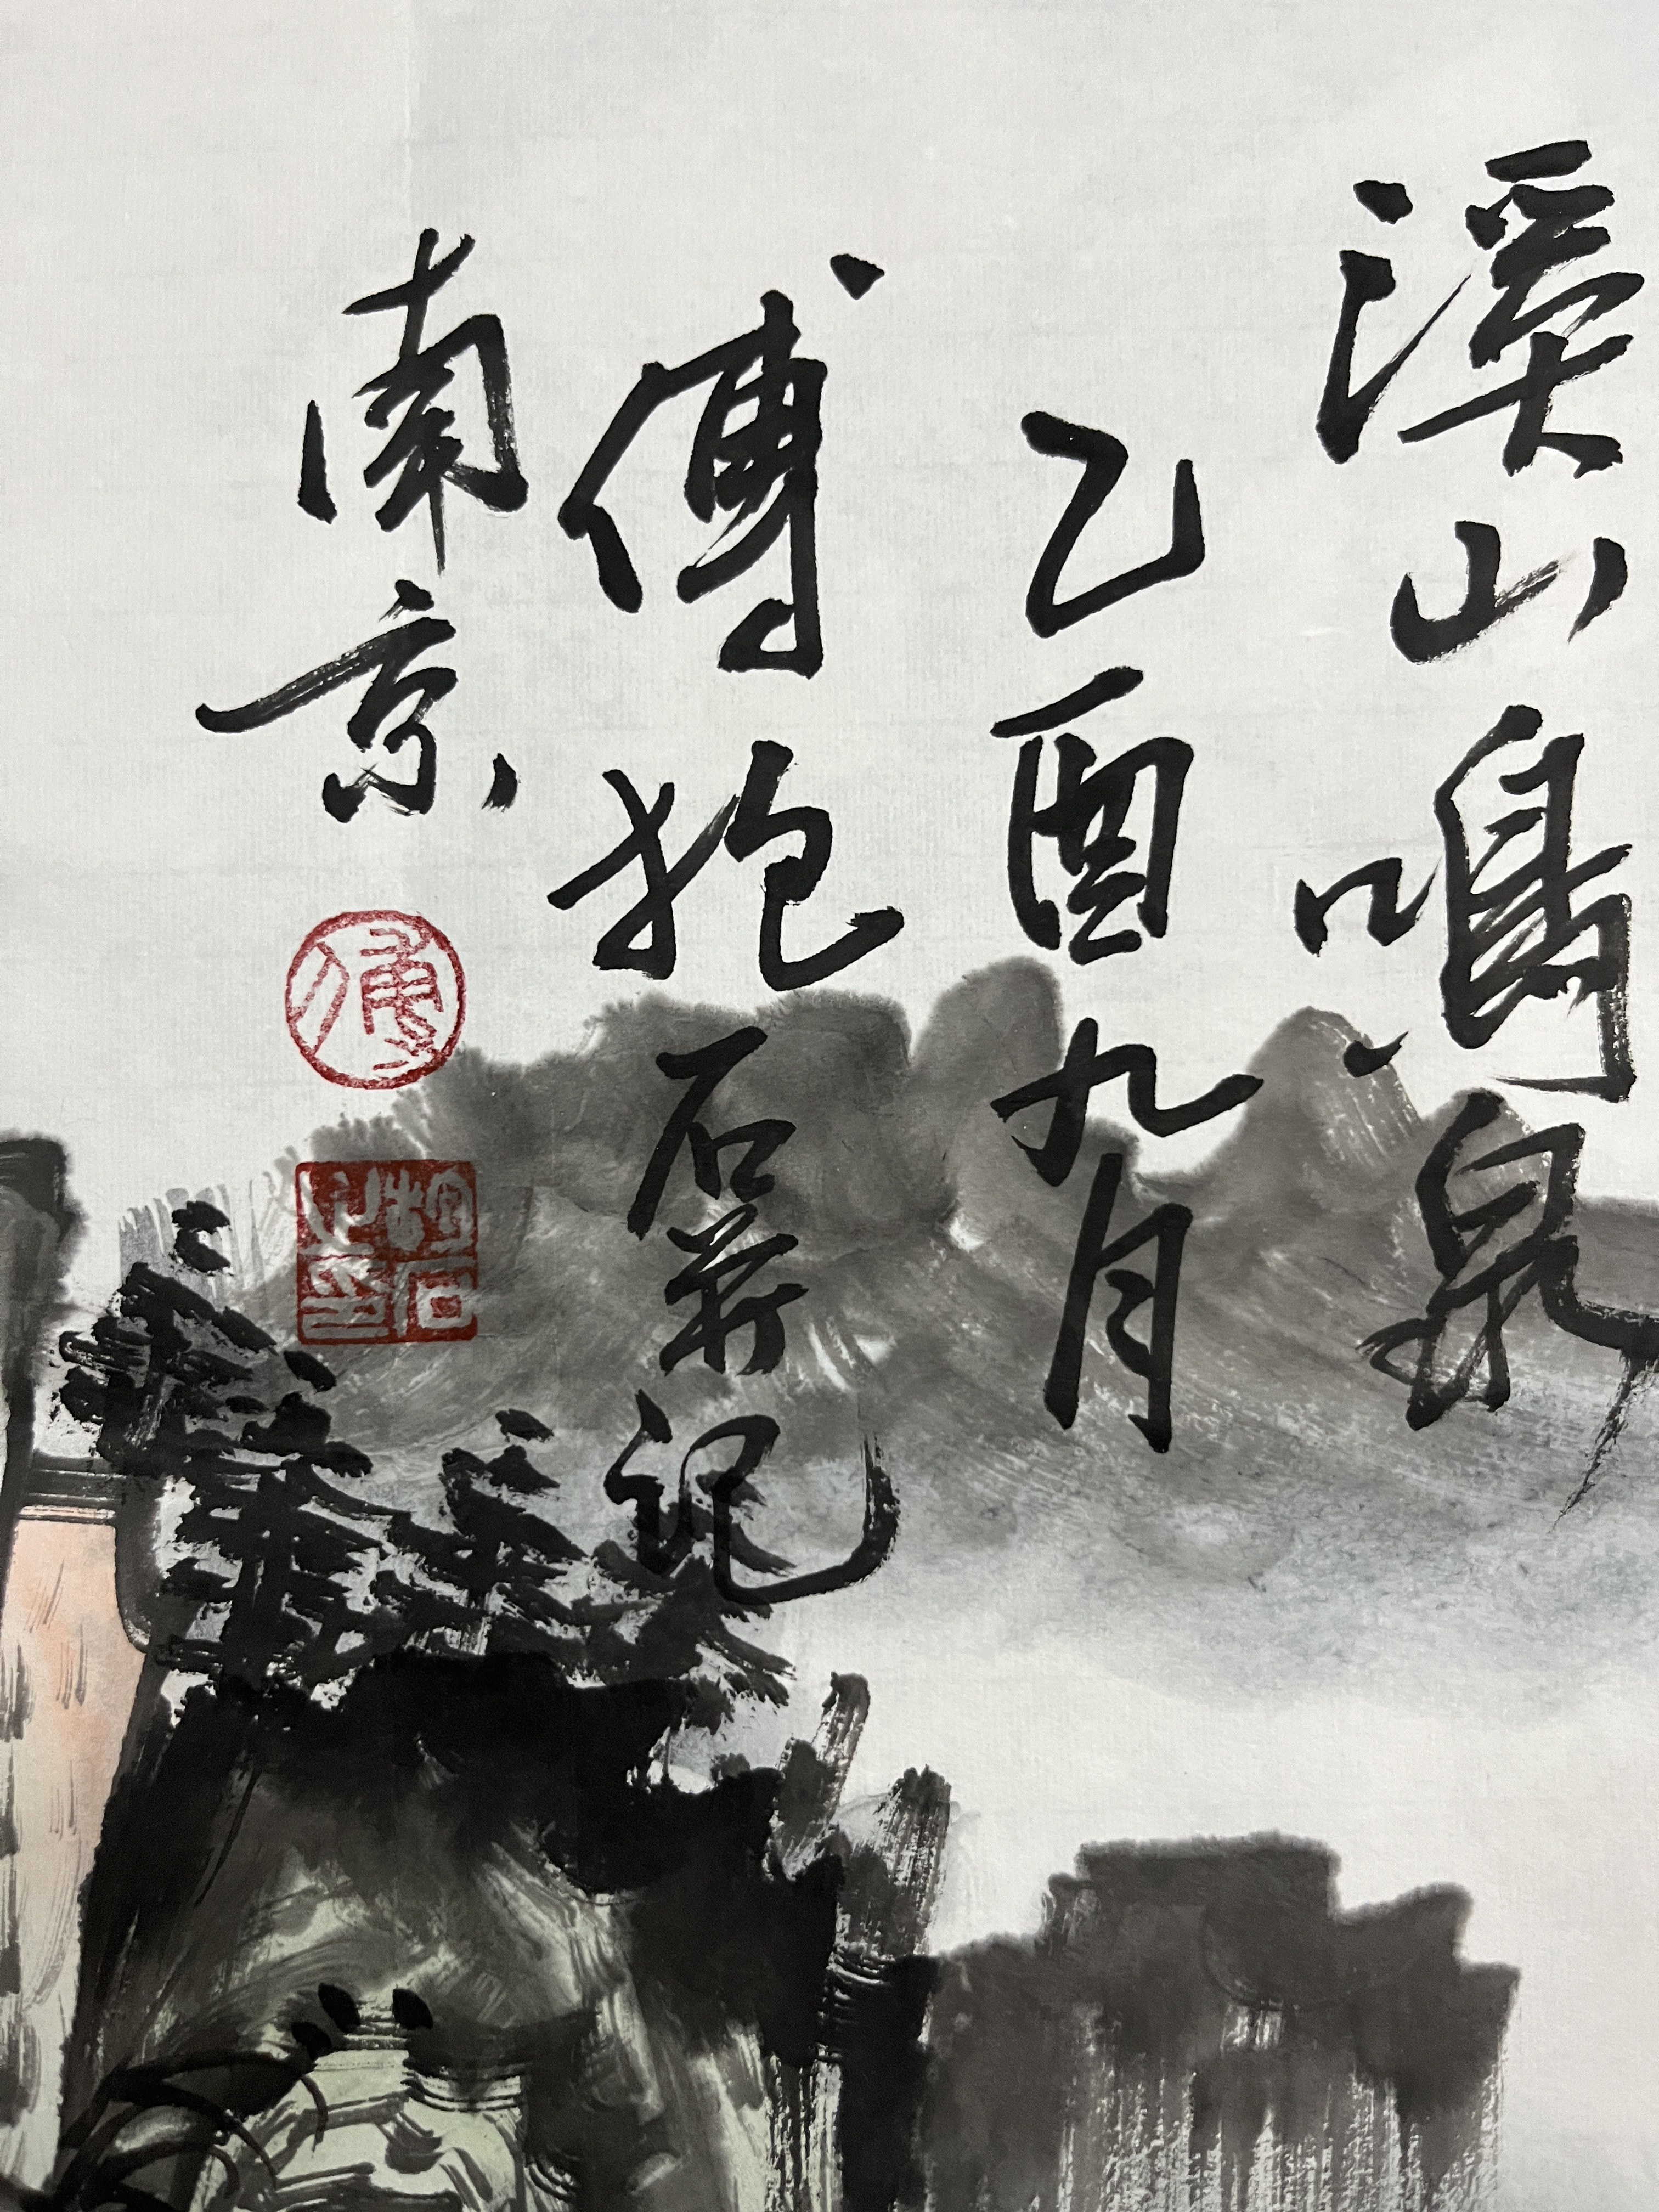 溪山鳴泉
乙酉九月
傅抱石并记
南京
傅
抱石之印